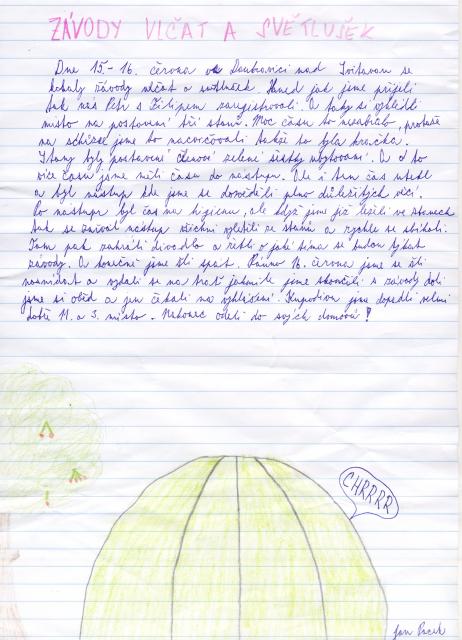 ZÁVODY VLČAT A SVĚTLUŠEK
Dne 15.-16. června v Doubravici nad Svitavou se
konaly závody vlčat a světlušek. Hned jak jsme přijeli
tak nás Petr s Filipem zaregistrovali. A taky si vyhlédli
místo na postavení tří stanů. Moc času to nezabralo, protože
na schůzce jsme to nacvičovali takže to byla hračka.
Stany byly postavené členové zelené šestky ubytovaní. A o to
více času jsme měli času do nástupu. Ale i ten čas utekl
a byl nástup kde jsme se dozvěděli plno důležitých věcí.
Po nástupu byl čas na hygienu, ale když jsme již leželi ve stanech
tak se ozýval nástup všichni vylezli ze stanů a rychle se sbíhali.
Tam pak zahráli divadlo a řekli o jaké téma se budou týkat
závody. A konečně jsme šli spát. Ráno 16. června jsme se šli
nasnídat a vydali se na trať jakmile jsme skončili s závody dali
jsme si oběd a jen čekali na vyhlášení. Kupodivu jsme dopadli velmi
dobře 11. a 3. místo. Nakonec odjeli do svých domovů!
CHRRRR
Jan Pacek